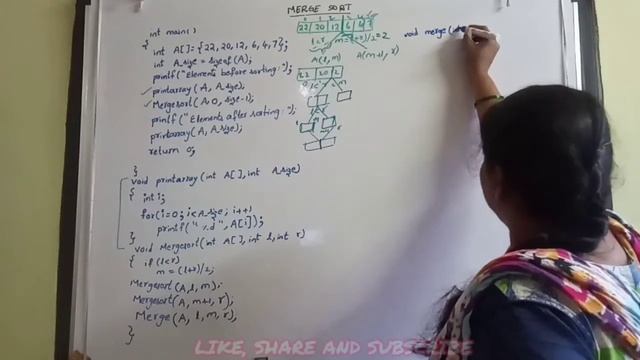 MERGE SORT
int main()
{ int A[]= {22, 20, 12, 6, 4, 7};
int A_size = sizeof(A);
printf("Elements before sorting:");
printarray(A, A_size);
Mergesort(A, 0, size-1);
printf("Elements after sorting:");
printarray(A, A_size);
return 0;
}
void printarray(int A[], int A_size)
{ int i;
for(i=0; i<A_size; i++)
printf("%d", A[i]);
}
void Mergesort(int A[], int l, int r)
{ if (l<r)
m = (l+r)/2;
Mergesort(A, l, m);
Mergesort(A, m+1, r);
Merge(A, l, m, r);
}
22 20 12 6 4 7
l<r m=(l+r)/2=2
A(l, m) A(m+1, r)
void merge(
LIKE, SHARE AND SUBSCRIBE